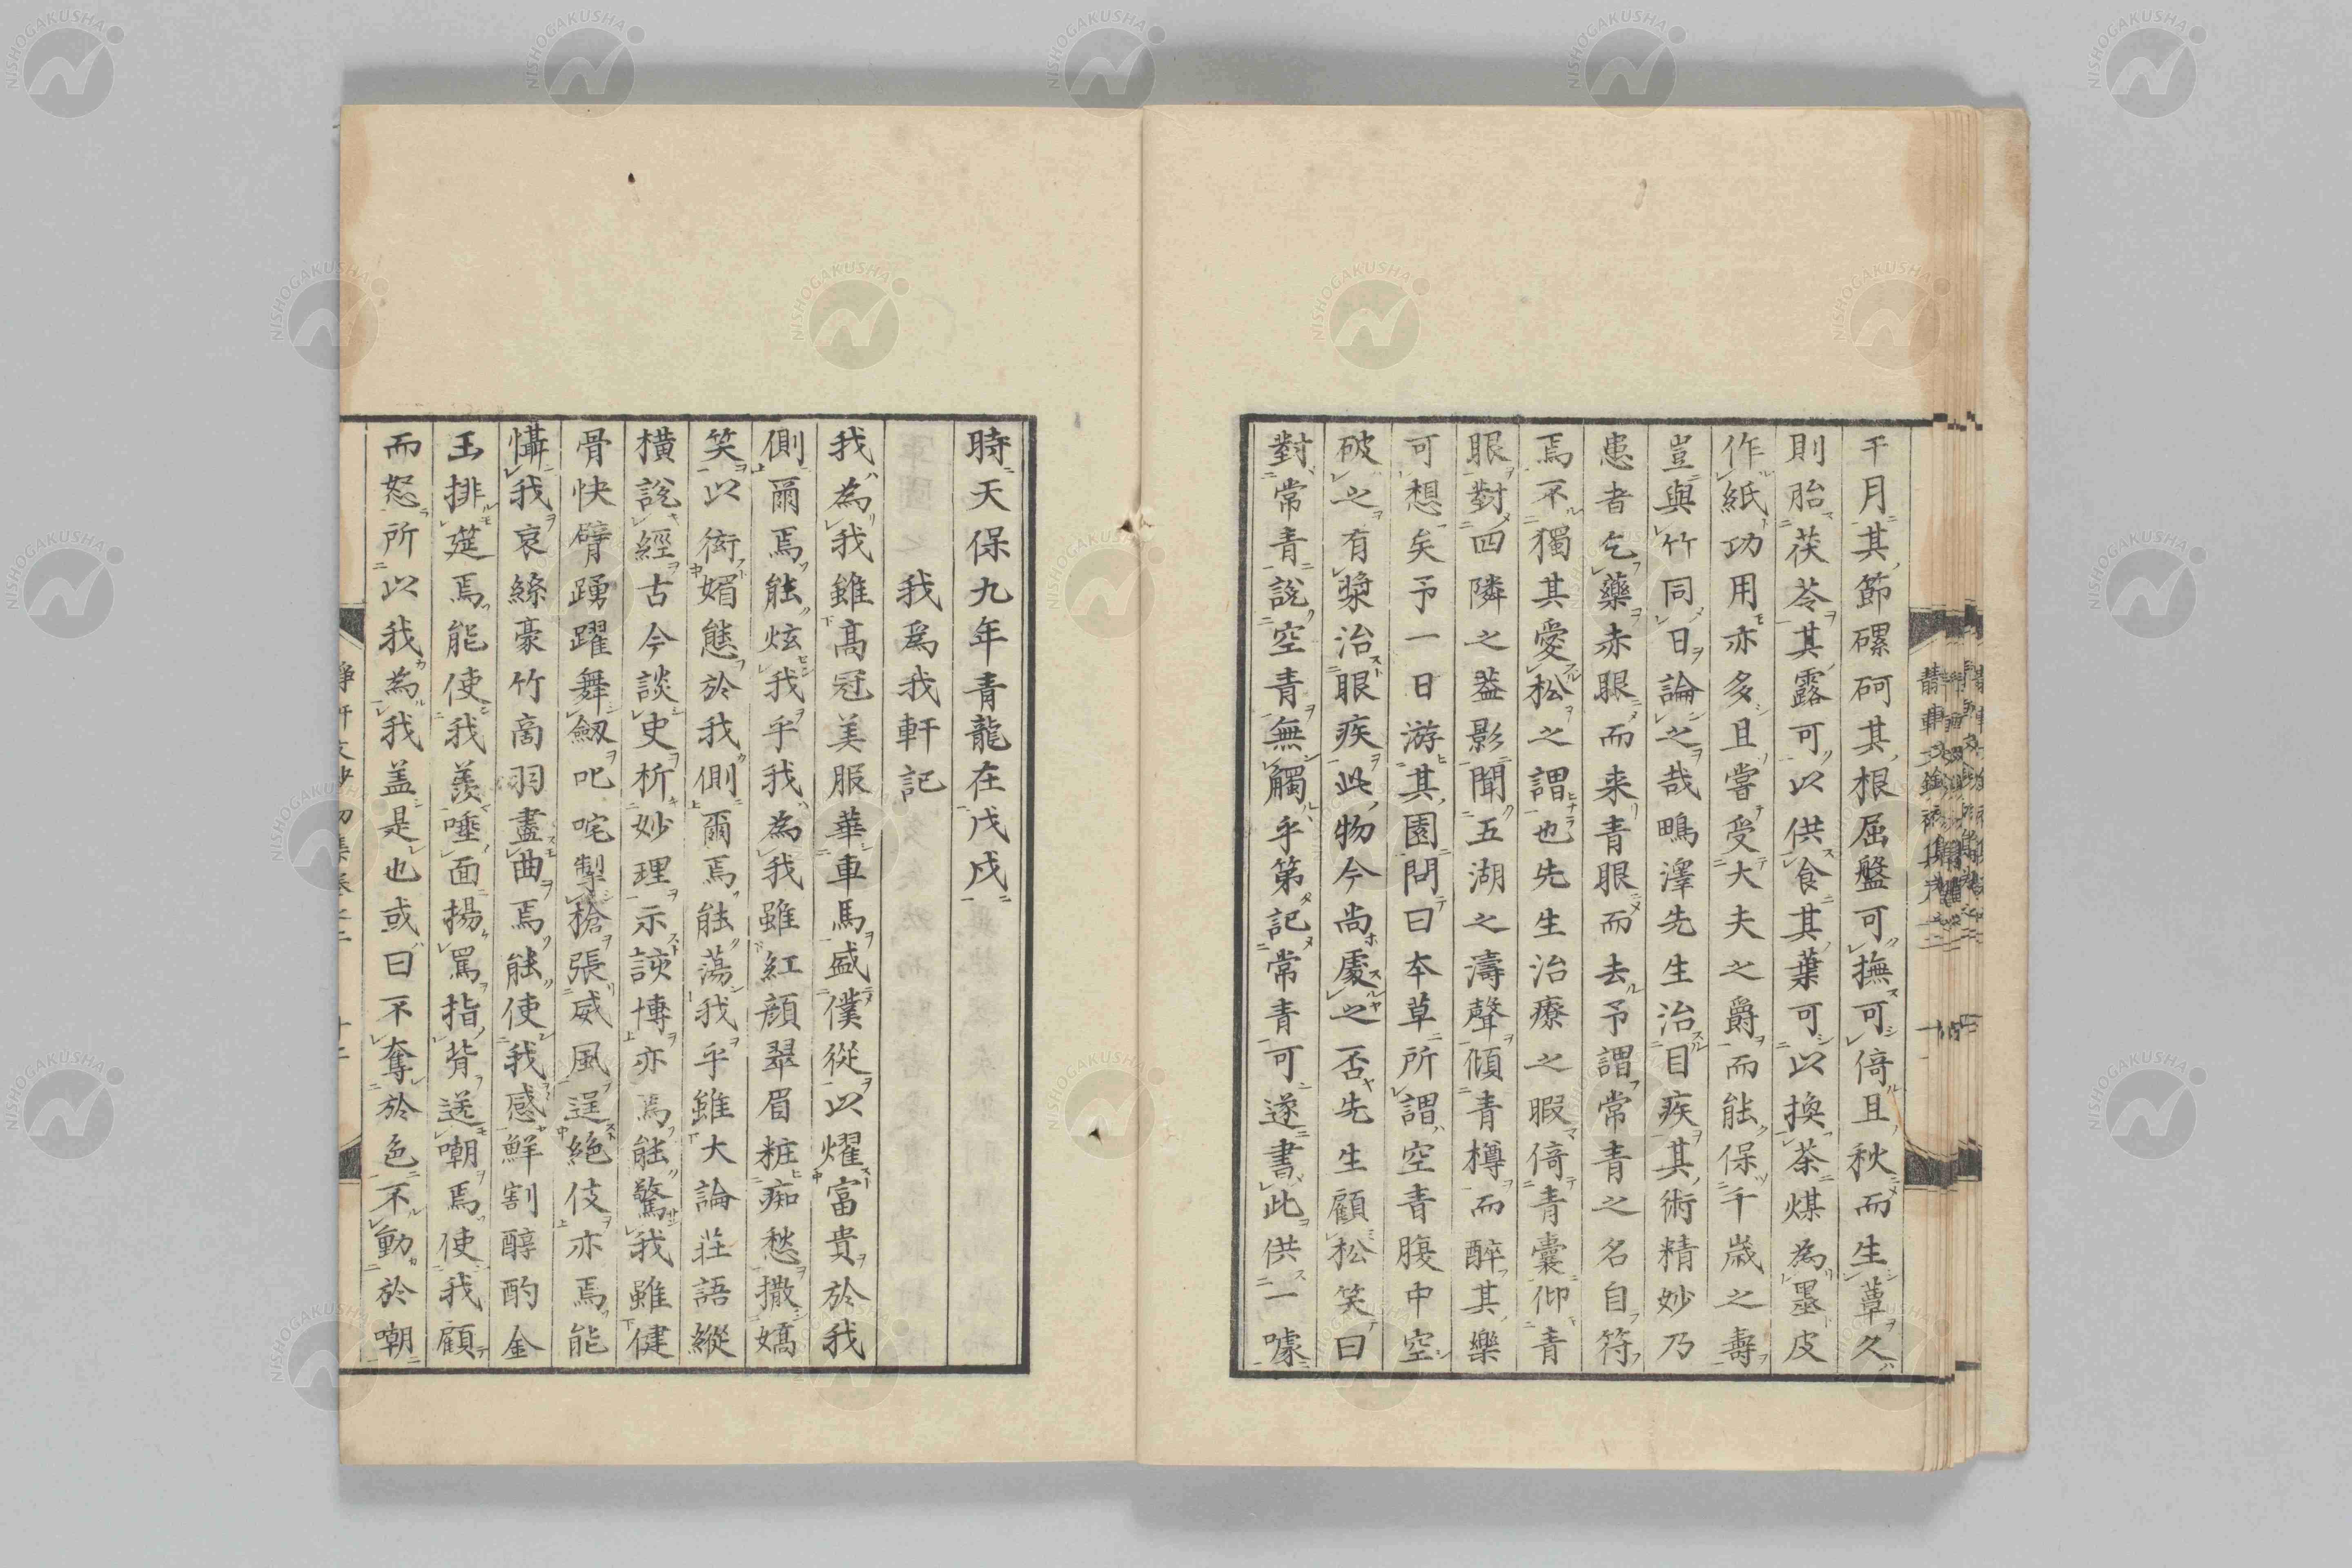 干月其節磥砢其根屈盤可撫可倚且秋而生蕈久
則胎茯苓其露可以供食其葉可以換茶煤為墨皮
作紙功用亦多且嘗受大夫之爵而能保千歳之壽
豈與竹同日論之哉鴨澤先生治目疾其術精妙乃
患者乞藥赤眼而来青眼而去予謂常青之名自符
焉不獨其愛松之謂也先生治療之暇倚青囊仰青
眼對四隣之葢影聞五湖之濤聲傾青樽而醉其樂
可想矣予一日游其園問曰本草所謂空青腹中空
破之有漿治眼疾此物今尚處之否先生顧松笑曰
對常青說空青無觸乎第記常青可遂書此供一噱
時天保九年青龍在戊戌
我為我軒記
我為我雖高冠美服華車馬盛僕從以燿富貴於我
側爾焉能炫我乎我為我雖紅顔翠眉粧痴愁撒嬌
笑以衒媚態於我側爾焉能蕩我乎雖大論莊語縱
橫說經古今談史析妙理示諛博亦焉能驚我雖健
骨快臂踴躍舞劔叱咤掣槍張威風逞絶伎亦焉能
懾我哀絲豪竹啇羽盡曲焉能使我感鮮割醇酌金
玉排筵焉能使我羨唾面揚罵指背送嘲焉使我顧
而怒所以我為我盖是也或曰不奪於色不動於嘲
NISHOGAKUSHA